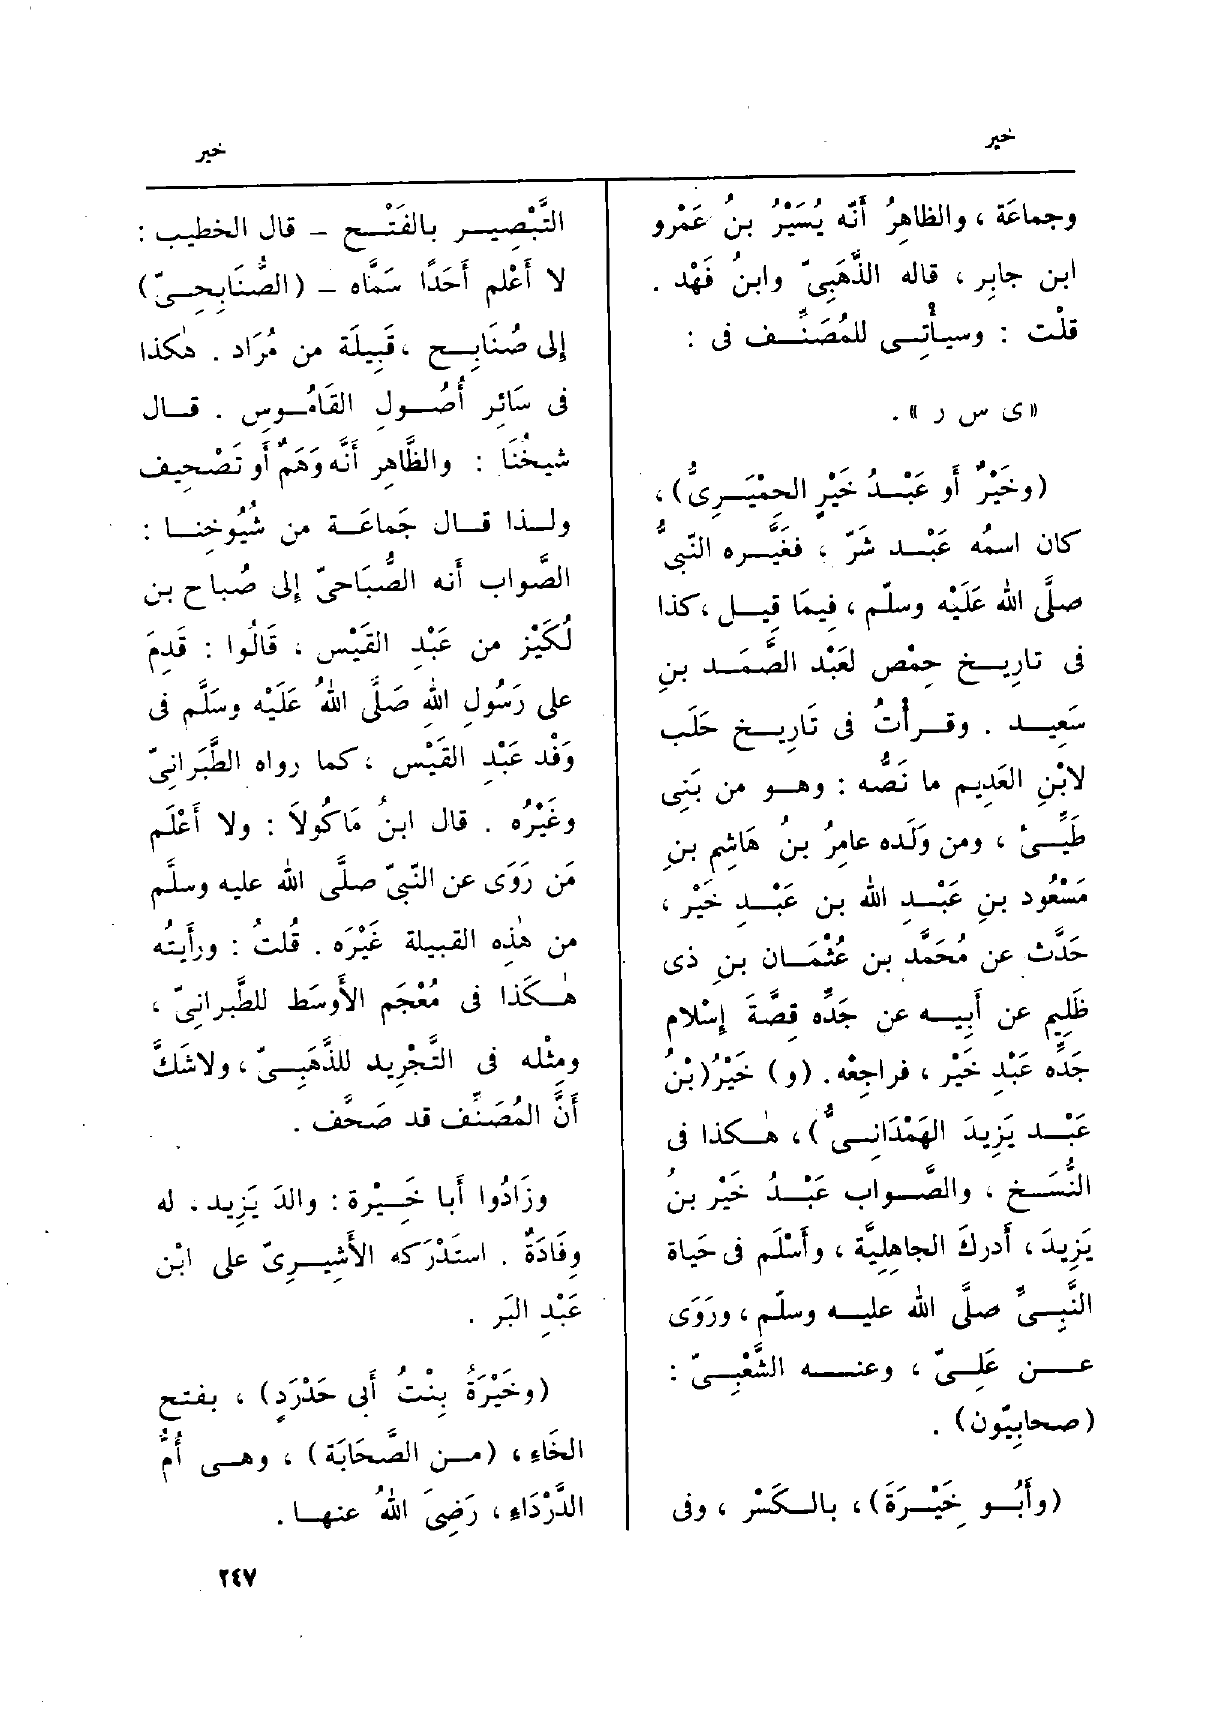 خير
خير
وجماعَة ، والظاهِرُ أَنّه يُسَيْرُ بنُ عَمْرو
ابن جابِر ، قاله الذَّهَبِىّ وابنُ فَهْد .
قلْت : وسيأْتِى للمُصَنِّف فى :
«ى س ر» .
(وخَيْرٌ أَو عَبْدُ خَيْرٍ الحِمْيَرِىُّ) ،
كان اسمُه عَبْد شَرّ ، فغَيَّره النّبىُّ
صلَّى الله عَلَيْه وسلّم ، فيمَا قِيل ، كذا
فى تارِيخ حِمْص لعَبْد الصَّمَد بنِ
سَعِيد . وقرأْتُ فى تَارِيخ حَلَب
لابْنِ العَدِيم ما نَصُّه : وهو من بَنِى
طَيِّىْ ، ومن وَلَده عامِرُ بنُ هَاشِم بنِ
مَسْعُود بنِ عَبْدِ الله بن عَبْدِ خَيْر ،
حَدَّث عن مُحَمَّد بن عُثْمَان بنِ ذى
ظَلِيم عن أَبِيه عن جَدِّه قِصَّةَ إِسْلام
جَدِّه عَبْدِ خَيْر ، فراجعْه . (و) خَيْرُ (بْنُ
عَبْد يَزِيدَ الهَمْدَانِىُّ) ، هٰكذا فى
النُّسَخ ، والصَّواب عَبْدُ خَيْر بنُ
يَزِيدَ ، أَدركَ الجاهِلِيَّة ، وأَسْلَم فى حَياة
النَّبِىِّ صلَّى الله عليه وسلّم ، ورَوَى
عن عَلِىّ ، وعنه الشَّعْبِىّ :
(صحابِيّون) .
(وأَبُو خِيْرَةَ) ، بالكَسْر ، وفى
التَّبْصِير بالفَتْح – قال الخطيب :
لا أَعْلم أَحَدًا سَمَّاه – (الصُّنَابِحِىّ)
إلى صُنَابِح ، قَبِيلَة من مُرَاد . هٰكذا
فى سَائِر أُصُولِ القَامُوسِ . قال
شيخُنَا : والظَّاهِر أَنَّه وَهَمٌ أَو تَصْحِيف
ولذا قال جَماعَة من شُيُوخِنا :
الصَّواب أَنه الصُّبَاحىّ إلى صُباح بن
لُكَيْز من عَبْدِ القَيْس ، قَالُوا : قَدِمَ
على رَسُولِ اللهِ صَلَّى اللهُ عَلَيْه وسَلَّم فى
وَفْد عَبْدِ القَيْس ، كما رواه الطَّبَرانِىّ
وغَيْرُه . قال ابنُ مَاكُولاَ : ولا أَعْلَم
مَن رَوَى عن النَّبىّ صلَّى الله عليه وسلَّم
من هٰذِه القبيلة غَيْرَه . قُلتُ : ورأَيتُه
هٰكَذا فى مُعْجَم الأَوسَط للطَّبرانِىّ ،
ومِثْله فى التَّجْرِيد للذَّهَبِىّ ، ولاشَكَّ
أَنَّ المُصَنِّف قد صَحَّف .
وزَادُوا أَبا خَيِرة : والدَ يَزِيد . له
وِفَادَةٌ . استَدْرَكه الأَشِيرِىّ على ابْن
عَبْدِ البَر .
(وخَيْرَةُ بِنْتُ أَبى حَدْرَدٍ) ، بفتح
الخَاءِ ، (من الصَّحَابَة) ، وهى أُمُّ
الدَّرْدَاءِ ، رَضِىَ اللهُ عنها .
٢٤٧